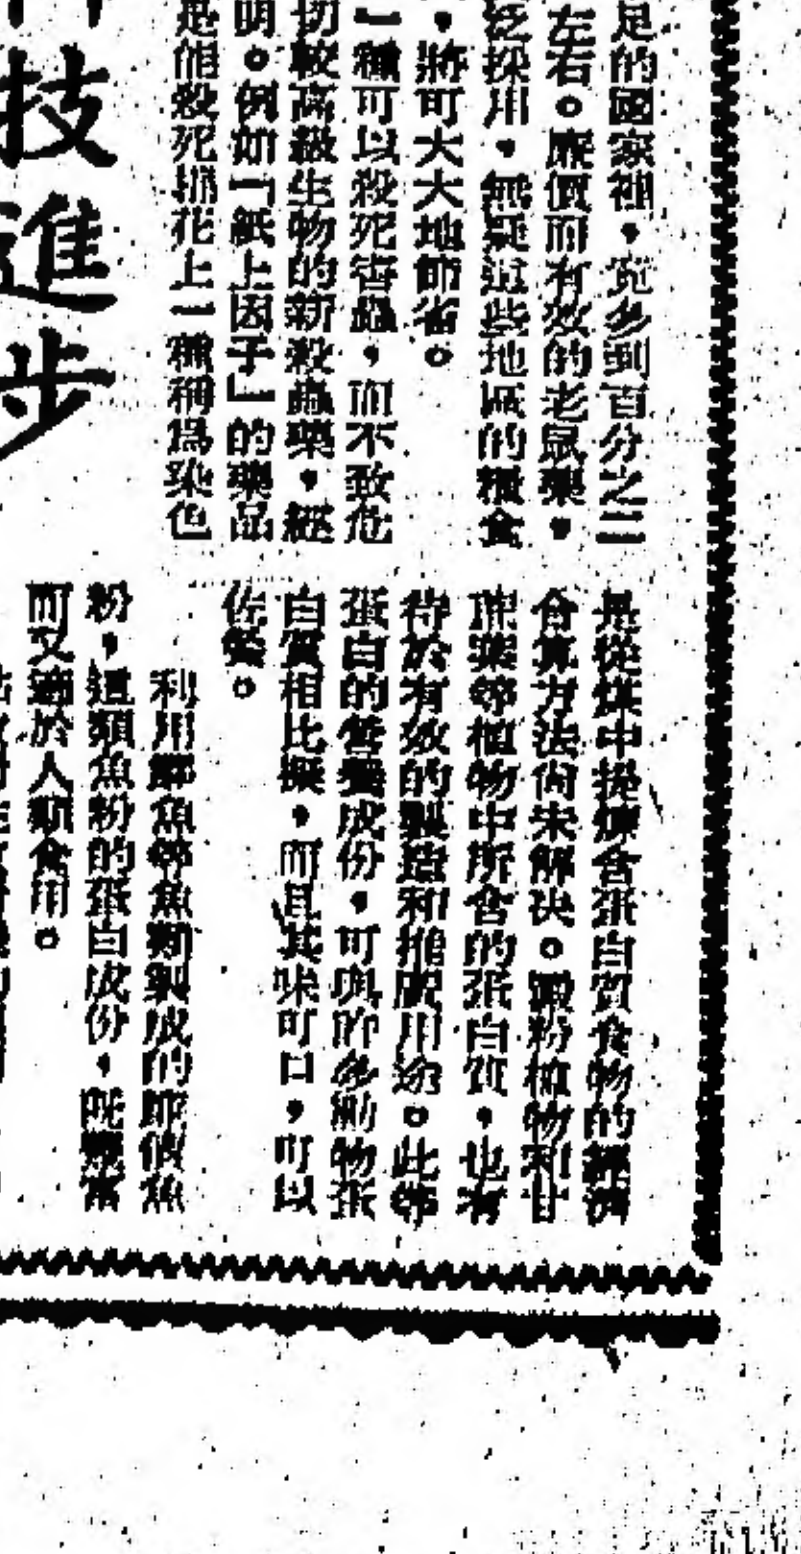 足的國家裡，竟多到百分之二
左右。廉價而有效的老鼠藥，
泛採用，無疑這些地區的糧食
，將可大大地節省。
一種可以殺死害蟲，而不致危
切較高級生物的新殺蟲藥，經
明。例如「紙上因子」的藥品
能殺死棉花上一種稱為染色
技進步
是從煤中提煉含蛋白質食物的經濟
合算方法尚未解決。澱粉植物和甘
蔬葉等植物中所含的蛋白質，也有
待於有效的製造和推廣用途。此等
蛋白的營養成份，可與許多動物蛋
白質相比擬，而且其味可口，可以
佐餐。
利用鯡魚等魚類製成的鯡假魚
粉，這類魚粉的蛋白成份，既豐富
而又適於人類食用。